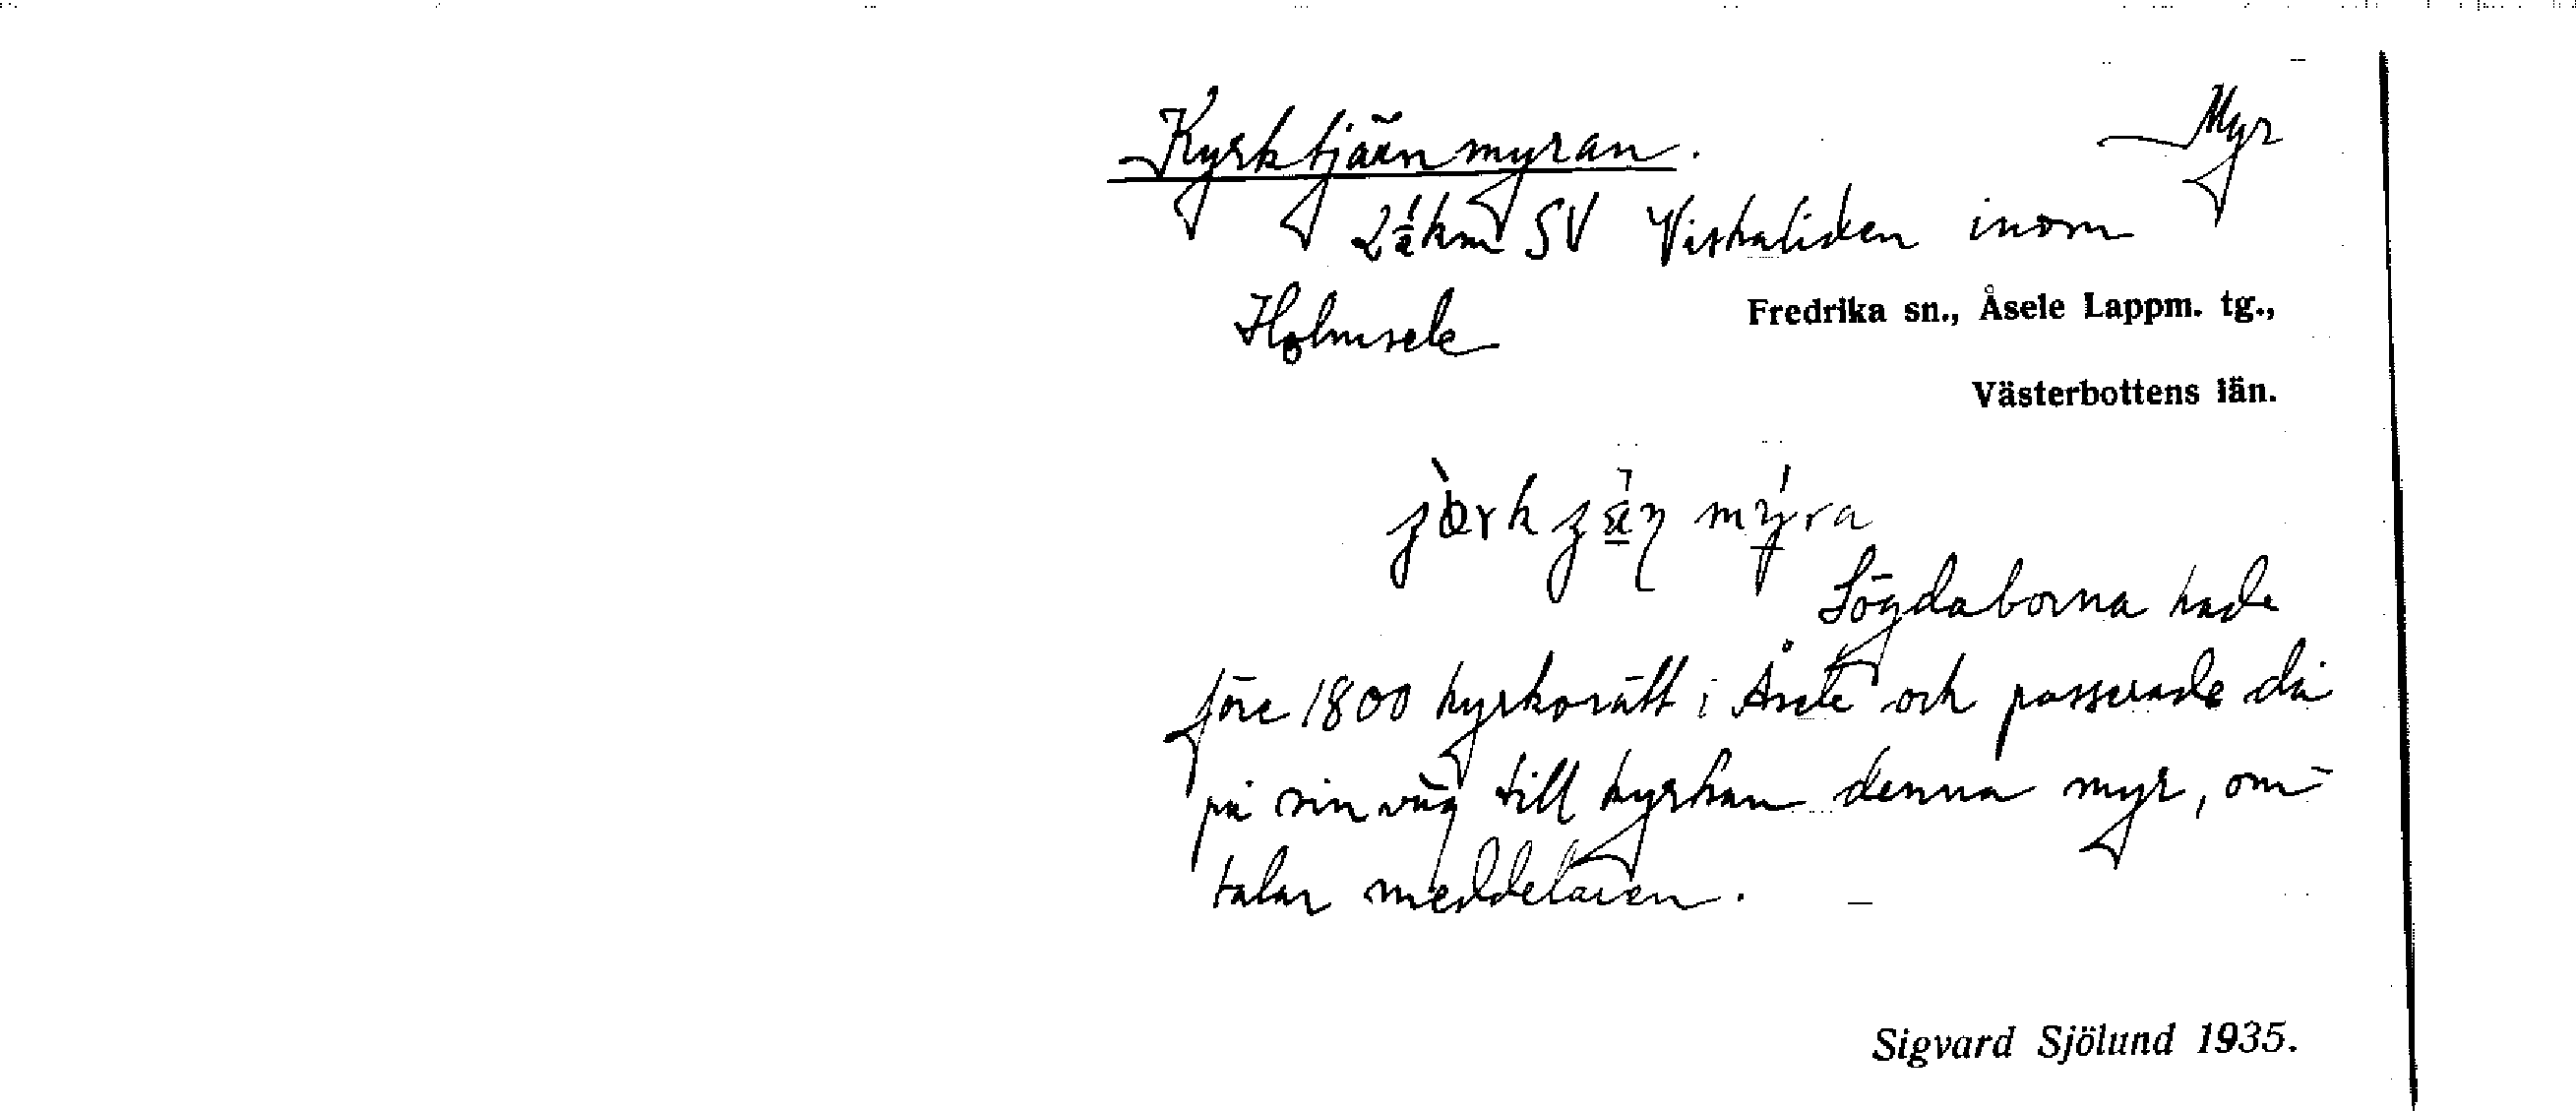 Kyrktjärnmyran.
Myr
2½ km SV Viskaliden inom
Holmsele
Fredrika sn., Åsele Lappm. tg.,
Västerbottens län.
Lögdaborna hade
före 1800 kyrkorätt i Åsele och passerade då
på sin väg till kyrkan denna myr, om-
talar meddelaren. –
Sigvard Sjölund 1935.